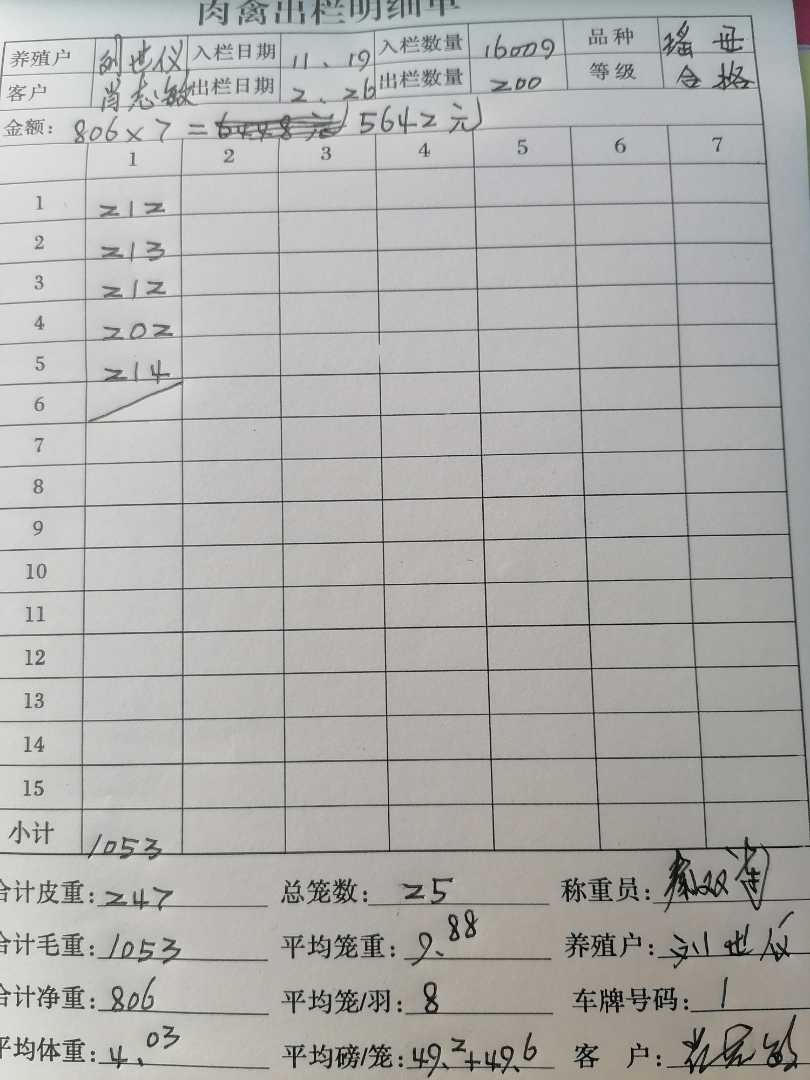 肉禽出栏明细单
养殖户 刘世仪 入栏日期 11.19 入栏数量 16009 品种 瑶母
客户 肖志敏 出栏日期 2.26 出栏数量 200 等级 合格
金额: 806×7= 5642元
1 2 3 4 5 6 7
1 212
2 213
3 212
4 202
5 214
6
7
8
9
10
11
12
13
14
15
小计 1053
合计皮重: 247 总笼数: 25 称重员:
合计毛重: 1053 平均笼重: 9.88 养殖户: 刘世仪
合计净重: 806 平均笼/羽: 8 车牌号码: 1
平均体重: 4.03 平均磅/笼: 49.2+49.6 客户: